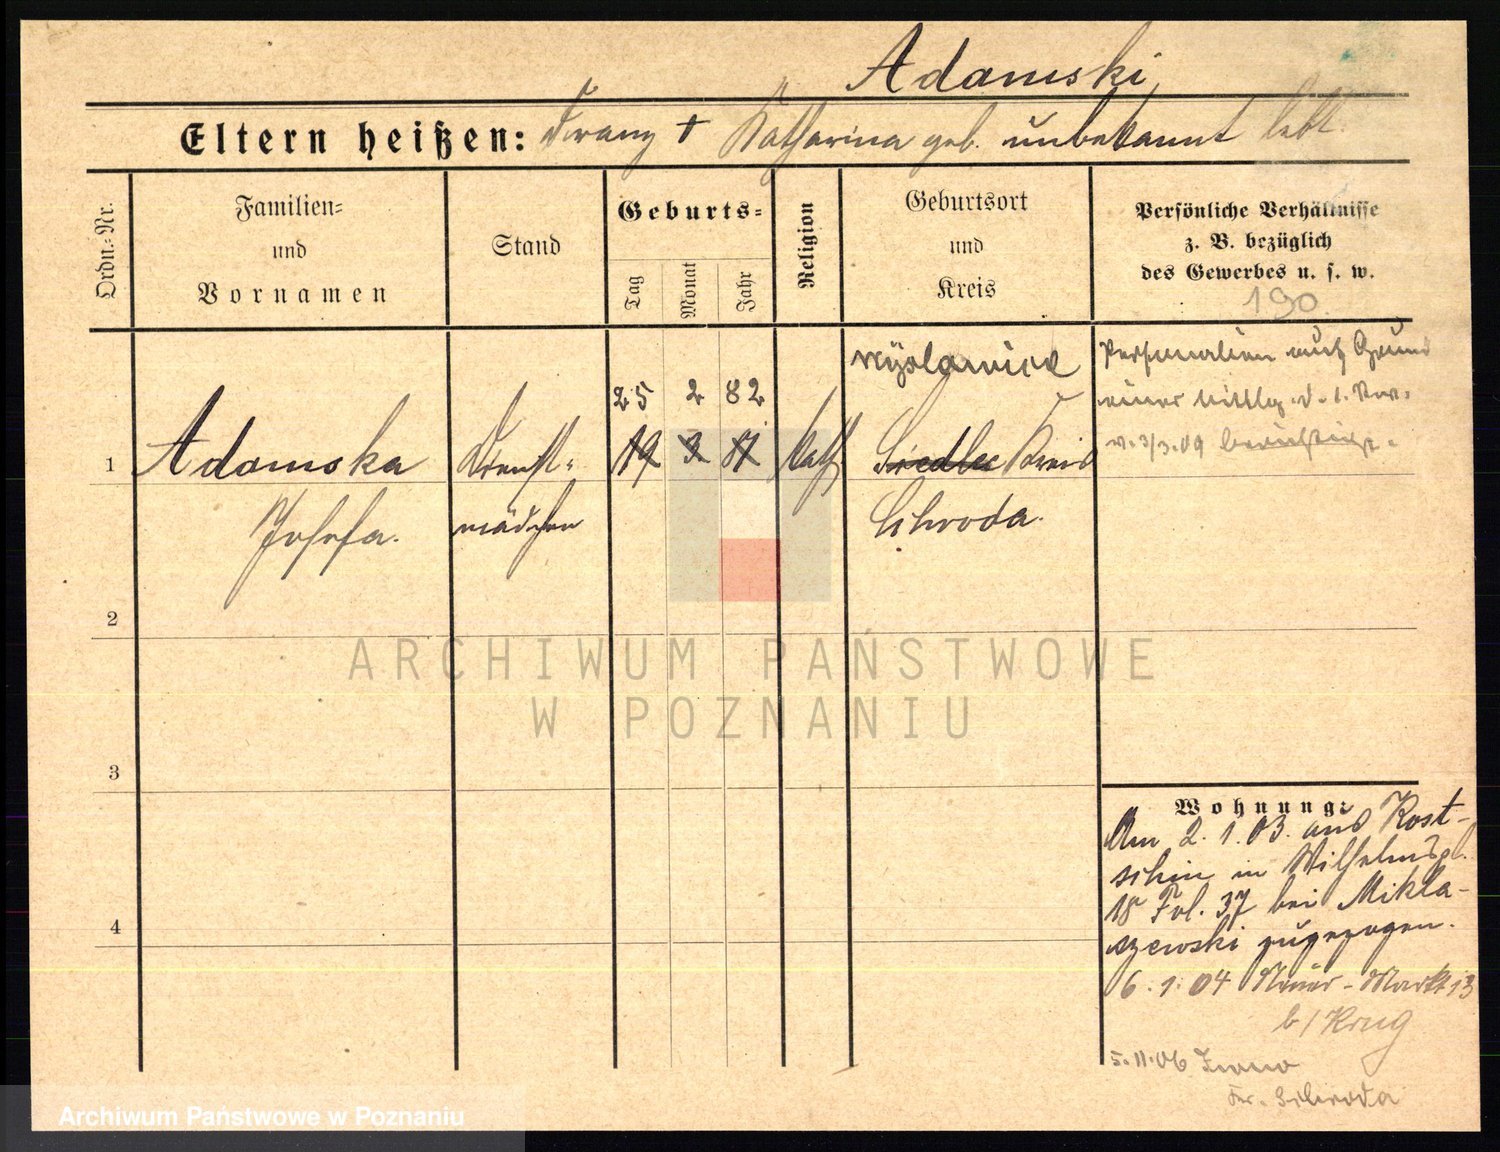 Adamski
Eltern heißen: Franz + Katharina geb. unbekannt lebt.
Ordn.-Nr.
Familien-
und
Vornamen
Stand
Geburts-
Tag
Monat
Jahr
Religion
Geburtsort
und
Kreis
Persönliche Verhältnisse
z. B. bezüglich
des Gewerbes u. s. w.
190
1
Adamska
Josefa.
Dienst-
mädchen
25 2 82
19 3 81
kath.
Siedlec Kreis
Schroda.
Personalien auf Grund
einer Mittlg. d.
v. 3/3.09 berichtigt.
2
3
4
Wohnung:
Am 2. 1. 03. aus Kost-
schin in Wilhelmspl.
18 Fol. 37 bei Mikla-
szewski zugezogen.
6. 1. 04 Neuer-Markt 13
b/Krug
5. 11. 06
Kr. Schroda
ARCHIWUM PAŃSTWOWE
W POZNANIU
Archiwum Państwowe w Poznaniu